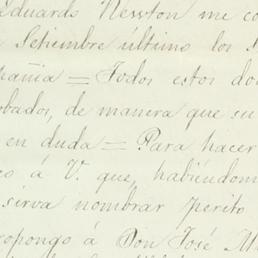 Eduardo Newton me co
Setiembre último los
pañia = Todos estos do
obados, de manera que su
en duda = Para hacer
á V. que, habiéndom
sirva nombrar perito
ropongo á Don José M